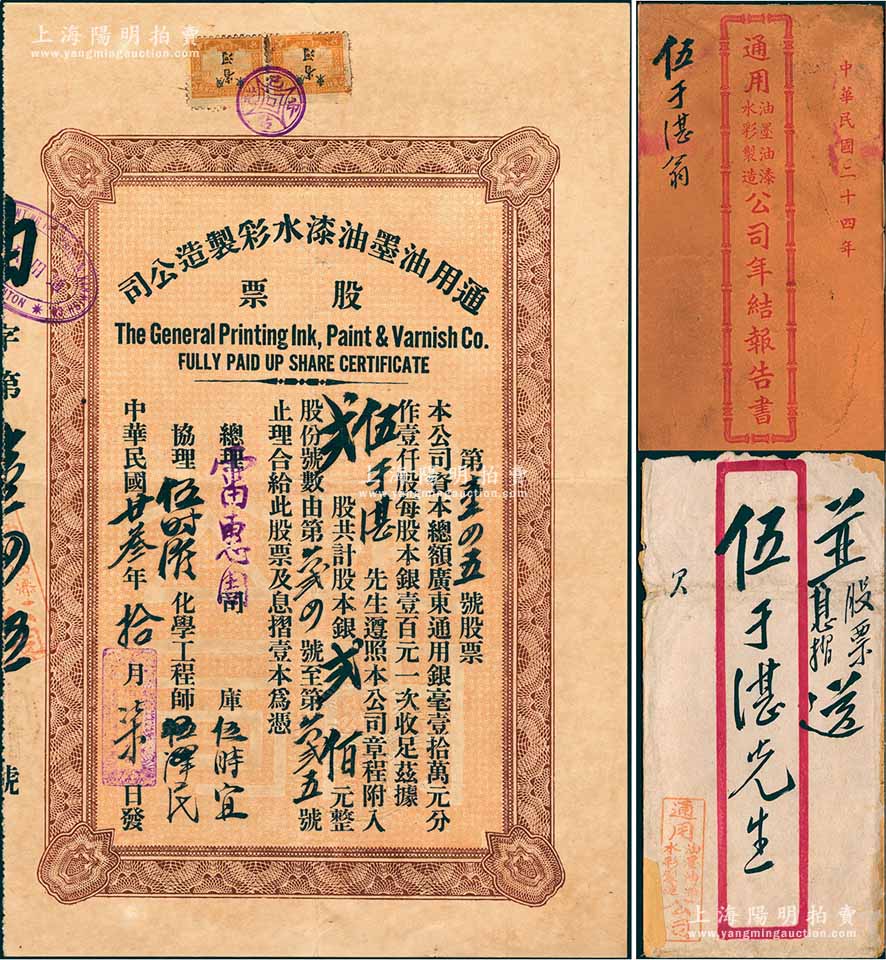 上海陽明拍賣
www.yangmingauction.com
通用油墨油漆水彩製造公司
股票
The General Printing Ink, Paint & Varnish Co.
FULLY PAID UP SHARE CERTIFICATE
第壹四五號股票
本公司資本總額廣東通用銀毫壹拾萬元分
作壹仟股每股本銀壹百元一次收足茲據
伍于湛 先生遵照本公司章程附入
貳 股共計股本銀貳佰元整
股份號數由第 號至第 號
止理合給此股票及息摺壹本為憑
總理 庫 伍時宜
協理 化學工程師 伍澤民
中華民國廿叁年拾月柒日發
字第 號
上海陽明拍賣
www.yangmingauction.com
中華民國二十四年
通用油墨油漆水彩製造公司年結報告書
伍于湛翁
上海陽明拍賣
www.yangmingauction.com
並股票息摺送
伍于湛先生
通用油墨油漆水彩製造公司
上海陽明拍賣
www.yangmingauction.com